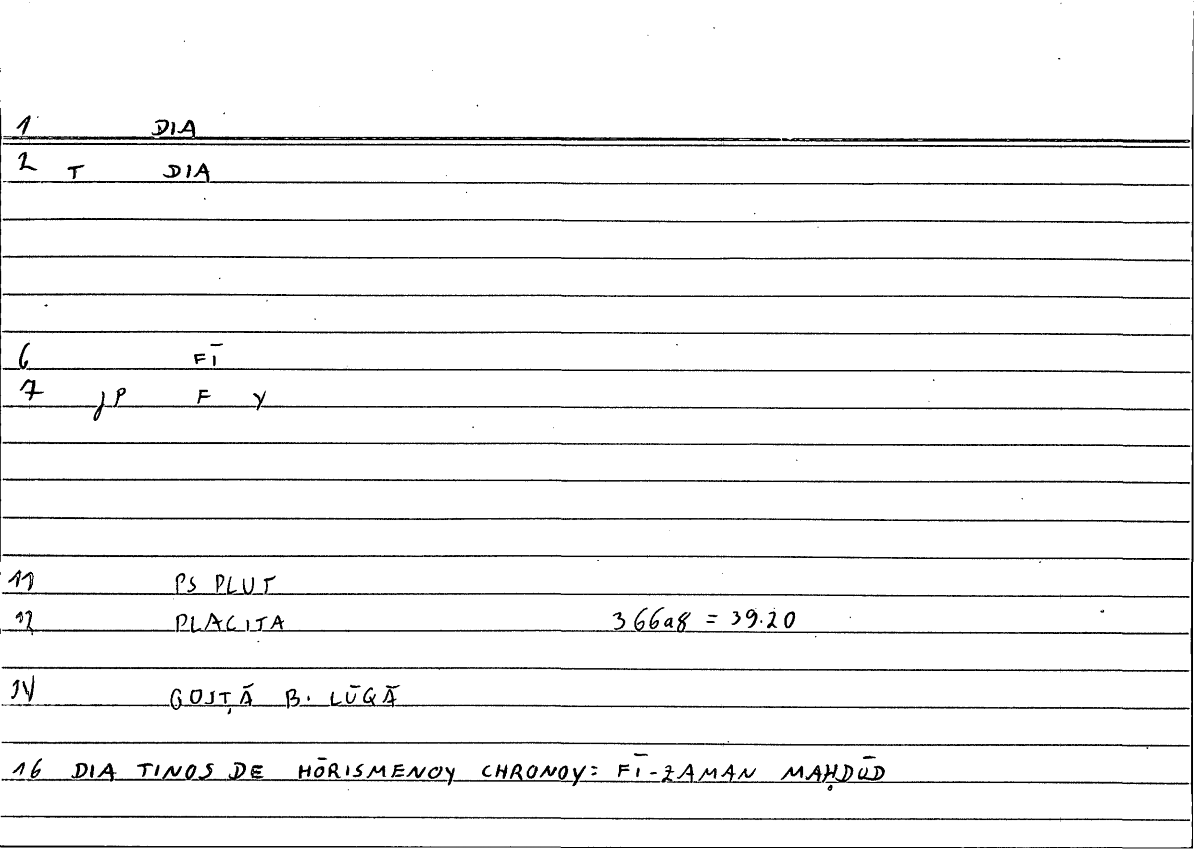 1 DIA
2 T DIA
6 FĪ
7 jP F Y
11 PS PLUT
12 PLACITA 366a8 = 39.20
14 QOSṬĀ B. LŪQĀ
16 DIA TINOS DE HŌRISMENOY CHRONOY: FĪ-ZAMAN MAḤDŪD